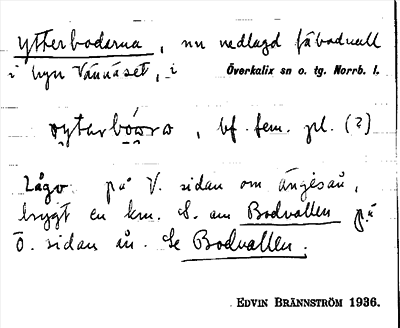 Ytterbodarna, nu nedlagd fäbodvall
i byn Vännäset, i Överkalix sn o. tg. Norrb. l.
ytarbóɷra, bf. fem. pl. (?)
Lågo på V. sidan om Ängesån,
bygt en km. S. om Bodvallen på
Ö. sidan ån. Se Bodvallen.
EDVIN BRÄNNSTRÖM 1936.